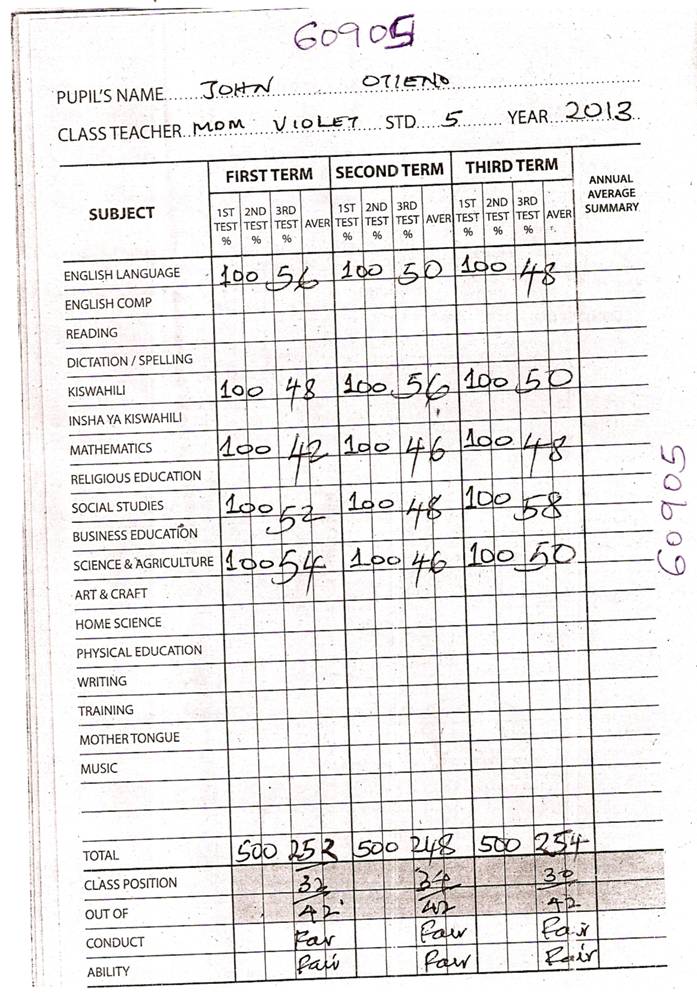 60905
PUPIL'S NAME JOHN OTIENO
CLASS TEACHER MDM VIOLET STD. 5 YEAR 2013
SUBJECT FIRST TERM SECOND TERM THIRD TERM ANNUAL AVERAGE SUMMARY
1ST TEST % 2ND TEST % 3RD TEST % AVER 1ST TEST % 2ND TEST % 3RD TEST % AVER 1ST TEST % 2ND TEST % 3RD TEST % AVER
ENGLISH LANGUAGE 100 56 100 50 100 48
ENGLISH COMP
READING
DICTATION / SPELLING
KISWAHILI 100 48 100 56 100 50
INSHA YA KISWAHILI
MATHEMATICS 100 42 100 46 100 48
RELIGIOUS EDUCATION
SOCIAL STUDIES 100 52 100 48 100 58
BUSINESS EDUCATION
SCIENCE & AGRICULTURE 100 54 100 46 100 50
ART & CRAFT
HOME SCIENCE
PHYSICAL EDUCATION
WRITING
TRAINING
MOTHER TONGUE
MUSIC
TOTAL 500 252 500 248 500 254
CLASS POSITION 32 34 30
OUT OF 42 42 42
CONDUCT Fair Fair Fair
ABILITY Fair Fair Fair
60905